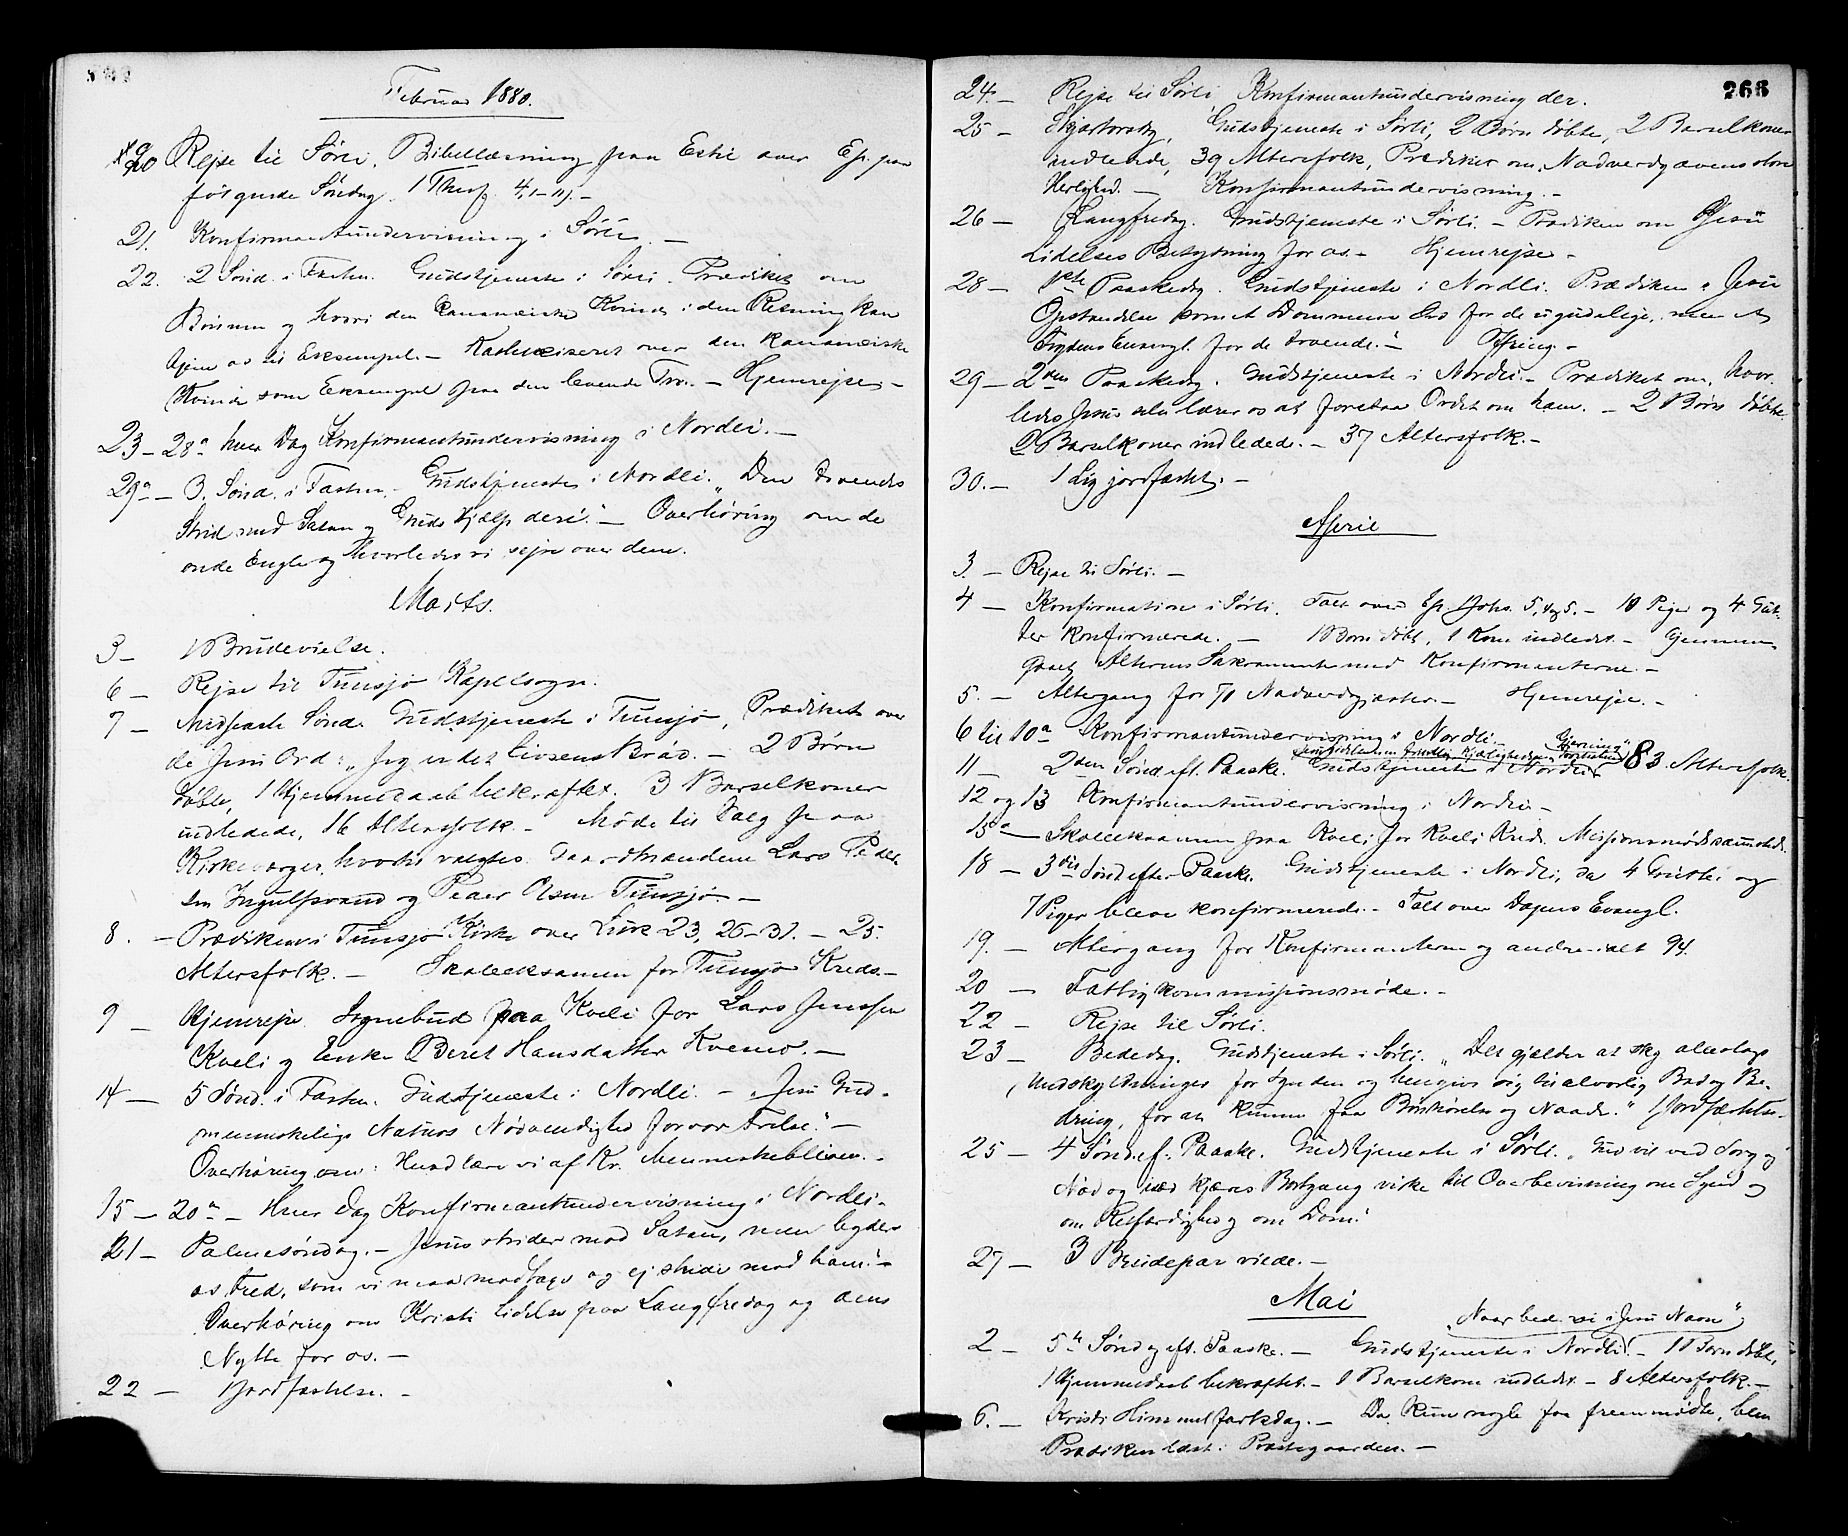 Februar 1880.
20 Rejse til Sörli. Bibellæsning paa Estil over Ep. paa
følgende Söndag. 1 Thess. 4, 1-11). -
21. Konfirmantundervisning i Sörli. -
22. 2 Sönd. i Fasten. Gudstjeneste i Sörli. Prædiket om
Bönnen og hvori den Kananæiske Kvinde i den Retning kan
tjene os til Eksempel. - Katekiseret over den kananæiske
Kvinde som Eksempel paa den levende Tro. - Hjemrejse -
23 - 28a hver Dag Konfirmantundervisning i Nordli. -
29a - 3. Sönd. i Fasten. - Gudstjeneste i Nordli. „Den troendes
Strid mod Satan og Guds Hjælp deri." - Overhöring om de
onde Engle og hvorledes vi sejre over dem.
Marts.
3 - 1 Brudevielse.
6 - Rejse til Tunsjö Kapelsogn.
7 - Midfaste Sönd. Gudstjeneste i Tunsjö. Prædiket over
de Jesu Ord: „Jeg er det Livsens Bröd. - 2 Börn
döbte, 1 Hjemmedaab bekræftet. 3 Barselkoner
indledede, 16 Altersfolk. - Möde til Valg paa
Kirkeværger, hvortil valgtes Gaardmændene Lars Peder-
sen Ingulfsvand og Peder Olsen Tunsjö -
8. - Prædiken i Tunsjö Kirke over Luk 23, 26-31. - 25
Altersfolk. - Skoleeksamen for Tunsjö Kreds. -
9 - Hjemrejse. Sognebud paa Kveli for Lars Jenssen
Kveli og Enke Beret Hansdatter Kvemo. -
14 - 5 Sönd. i Fasten. Gudstjeneste i Nordli. - „Jesu Gud-
menneskelige Naturs Nödvendighed for vor Frelse." -
Overhöring om: Hvad lære vi af Kr. Menneskebliven. -
15 - 20a - Hver Dag Konfirmantundervisning i Nordli -
21 - Palmesöndag. - Jesus strider mod Satan, men byder
os Fred, som vi maa modtage og ej stride mod ham." -
Overhöring om Kristi Lidelse paa Langfredag og dens
Nytte for os. -
22 - 1 Jordfæstelse. -
266
24. - Rejse til Sörli. Konfirmantundervisning der.
25 - Skjærtorsdag. Gudstjeneste i Sörli, 2 Börn döbte, 2 Barselkoner
indledede, 39 Altersfolk, Prædiken om Nadverdgavens store
Herlighed. - Konfirmantundervisning. -
26 - Langfredag. Gudstjeneste i Sörli. - Prædiken om Jesu
Lidelses Betydning for os. - Hjemrejse -
28 - 1ste Paaskedag. Gudstjeneste i Nordli. Prædiken „Jesu
Opstandelse som et Dommens Bud for de ugudelige, men et
Frydens Evangl. for de troende." - Ofring. -
29 - 2den Paaskedag. Gudstjeneste i Nordli. - Prædiket om, hvor-
ledes Jesus selv lærer os at forstaa Ordet om ham. - 2 Börn döbte
2 Barselkoner indledede. - 37 Altersfolk. -
30. - 1 Lig jordfæstet. -
April
3. - Rejse til Sörli. -
4 - Konfirmation i Sörli. Talt over Ep. 1 Joh. 5, 4 og 5. - 10 Piger og 4 Gut-
ter konfirmerede. - 1 Barn döbt, 1 Kone indledet. - Gjennem-
gaaet Alterens Sakramente med Konfirmanterne. -
5. - Altergang for 71 Nadverdgjæster. - Hjemrejse. -
6 til 10a Konfirmantundervisning i Nordli. -
11 - 2den Sönd. eft. Paaske. Gudstjeneste i Nordli 83 Altersfolk.
12 og 13 Konfirmantundervisning i Nordli -
15a - Skoleeksamen paa Kveli for Kveli Kreds. Missionsmöde sammesteds.
18 - 3die Sönd efter Paaske. Gudstjeneste i Nordli, da 4 Gutter og
7 Piger bleve konfirmerede. - Talt over Dagens Evangl.
19. - Altergang for Konfirmanterne og andre - ialt 94.
20 - Fattigkommissionsmöde. -
22 - Rejse til Sörli.
23 - Bededag. Gudstjeneste i Sörli. „Det gjælder at sky alleslags
Undskyldninger for Synden og hengive sig til alvorlig Bod og Be-
dring, for at kunne faa Bönhörelse og Naade." 1 Jordfæstelse. -
25 - 4 Sönd. ef. Paaske. Gudstjeneste i Sörli. „Gud vil ved Sorg og
Nöd og ved Kjæres Bortgang virke til Overbevisning om Synd og
om Retfærdighed og om Dom."
27 - 3 Brudepar viede. -
Mai
„Naar bede vi i Jesu Navn"
2 - 5te Sönd eft. Paaske. - Gudstjeneste i Nordli. - 1 Barn döbt,
1 Hjemmedaab bekræftet. - 1 Barselkone indledet - 8 Altersfolk. -
6. - Kristi Himmelfartsdag. - Da kun nogle faa fremmödte, blev
Prædiken læst i Præstegaarden. -